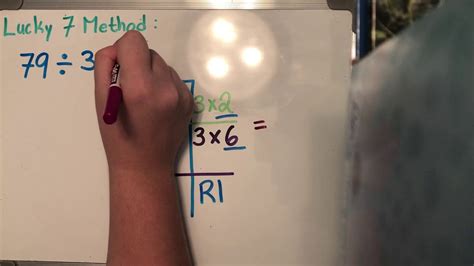 Lucky 7 Method:
79 ÷ 3
3×2
3×6 =
R1